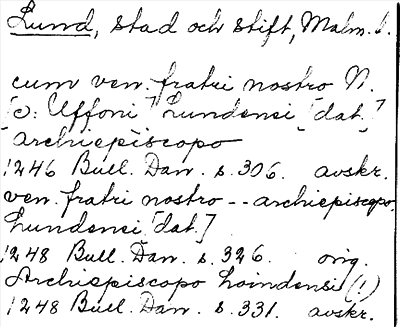 Lund, stad och stift, Malm. l.
cum ven. fratri nostro N.
[ɔ: Uffoni] Lundensi [dat.]
archiepiscopo
1246 Bull. Dan. s. 306. avskr.
ven. fratri nostro -- archiepiscopo
Lundensi [dat.]
1248 Bull. Dan. s. 326. orig.
Archiepiscopo Loindensi (!)
1248 Bull. Dan. s. 331. avskr.